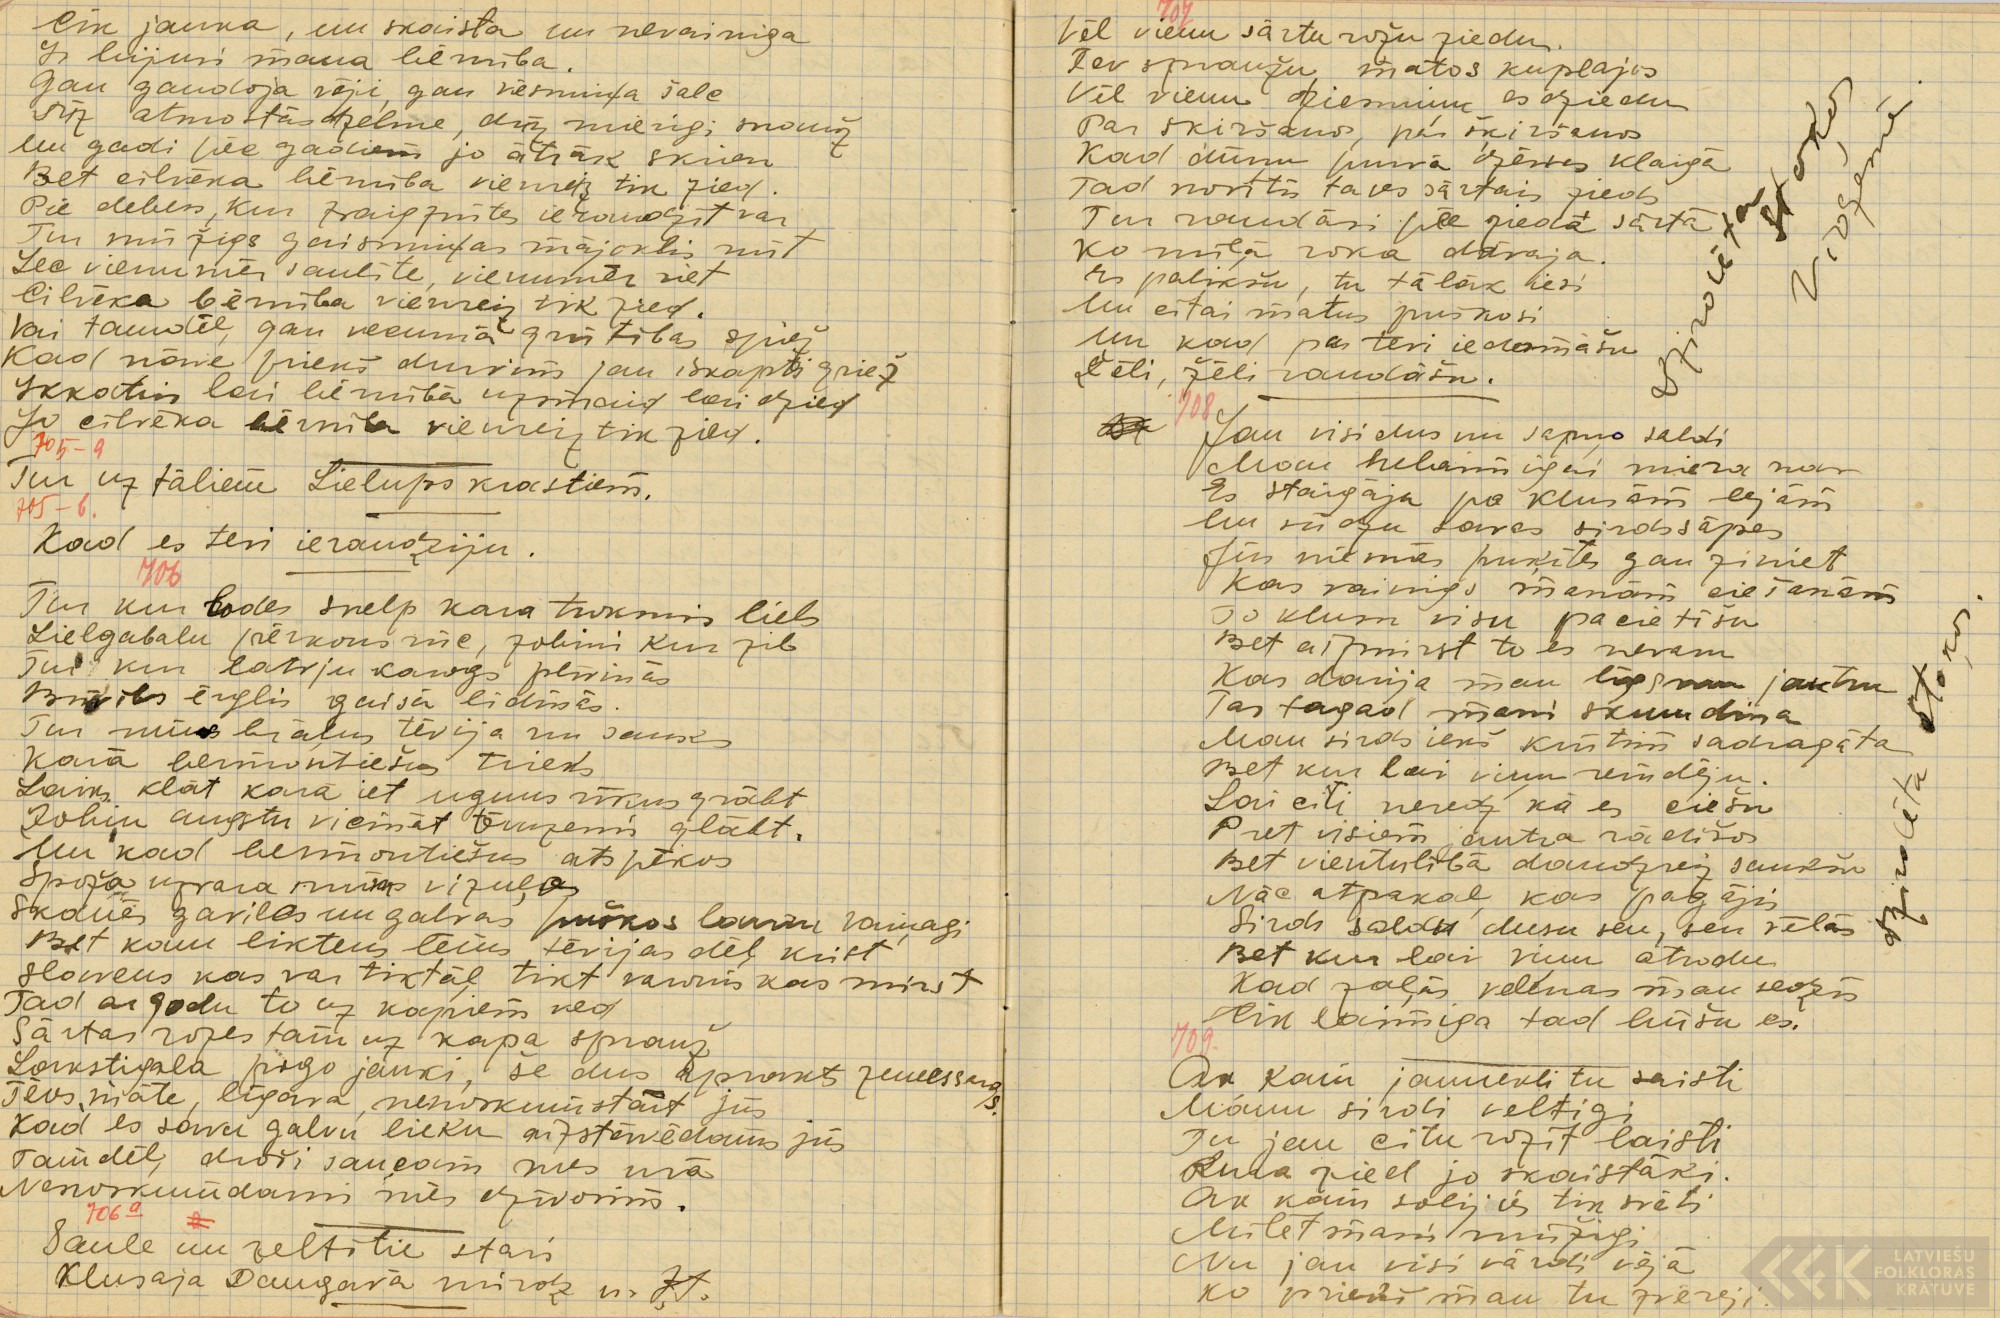 Cik jauka, un skaista un nevainiga
Ir bijusi mana bērnība.
Gan gaudoja vēji, gan vēsmiņa šalc
Drīz atmostās dzelme, drīz mierīgi snauž
Un gadi pēc gadiem jo ātrāk skrien
Bet cilvēka bērnība vienreiz tik zied.
Pie debess, kur zvaigznītes ieraudzīt var
Tur mūžigs gaismiņas mājoklis mīt
Lec vienmēr saulīte, vienmēr riet
Cilvēka bērnība vienreiz tik zied.
Vai tamdēļ, gan vecumā grūtības spiež
Kad nāve priekš durvīm jau iskapti griež
Skkatin lai bērnībā uzsmaid lai dzied
Jo cilvēka bērnība vienreiz tik zied.
705-a
Tur uz tāliem Lielups krastiem.
705-b.
Kad es tevi ieraudziju.
706
Tur kur lodes svelp kara troksnis liels
Lielgabalu pērkons rūc, zobini kur zib
Tur kur latvju karogs plivinās
Brīvības ērglis gaisā lidinās.
Tur mūs brāļus tēvija nu sauks
Karā bermontiešus trieks
Laiks klāt karā iet uguns rīkus grābt
Zobin augstu vicināt tēvzemi glābt.
Un kad bermontiešus atspēkos
Spoža uzvara mums vizuļos
Skanēs gaviles un galvas puškos lauru vaiņagi
Bet kam liktens lēmis tēvijas dēļ krist
Slavens kas var tiktāļ tikt varonis kas mirst
Tad ar godu to uz kapiem ved
Sārtas rozes tam uz kapa sprauž
Lakstigala pogo jauki, še dus aprakts zemessargs.
Tēvs, māte, līgava, nenoskumstat jūs
Kad es savu galvu lieku aizstāvēdams jūs
Tamdēļ, droši saucam mes urā
Nenoskumdami mēs dzīvosim.
706a
Saule un zeltītie stari
Klusaja Daugavā mirdz u. t.t.
707
Vēl vienu sārtu rožu ziedu.
Tev spraužu, matos kuplajos
Vēl vienu dziesmiņu es dziedu
Par skiršanos, par skiršanos
Kad dūmu purvā dzērves klaigā
Tad novītīs taves sārtais zieds
Tur raudāsi pēc zieda sārtā
Ko mīļā roka dāvaja.
Es palikšu, tu tālāk iesi
Un citai matus puškosi
Un kad par tevi iedomāšu
Žēli, žēli raudāšu.
Dzirdēta Stokos,
Vidzemē.
708
Jau visi dus nu sapņo saldi
Man nelaimīgai miera nav
Es staigāju pa klusām lejām
Un sūdzu savas sirdssāpes
Jūs niemās puķītes gan ziniet
Kas vainigs manām ciešanām
To klusu visu pacietīšu
Bet aizmirst to es nevaru
Kas darija man ligsmu jautru
Tas tagad mani skumdina
Man sirds iekš krūtīm sadragāta
Bet kur lai viņu remdēju.
Lai citi neredz kā es ciešu
Pret visiem jautra rādišos
Bet vientulībā daudzreiz saukšu
Nāc atpakaļ, kas pagājis
Sirds saldu dusu sen, sen vēlās
Bet kur lai viņu atrodu
Kad zaļās velēnas man segzīs
Cik laimiga tad būšu es.
Dzirdēta Stokos.
709.
Ak kam jaunekli tu saisti
Manu sirdi veltīgi
Tu jau citu rozīt laisti
Kura zied jo skaistāki.
Ak kam solijies tik svēti
Mīlēt mani mūžigi
Nu jau visi vārdi vējā
Ko priekš man tu zvēreji.
LATVIEŠU
FOLKLORAS
KRĀTUVE